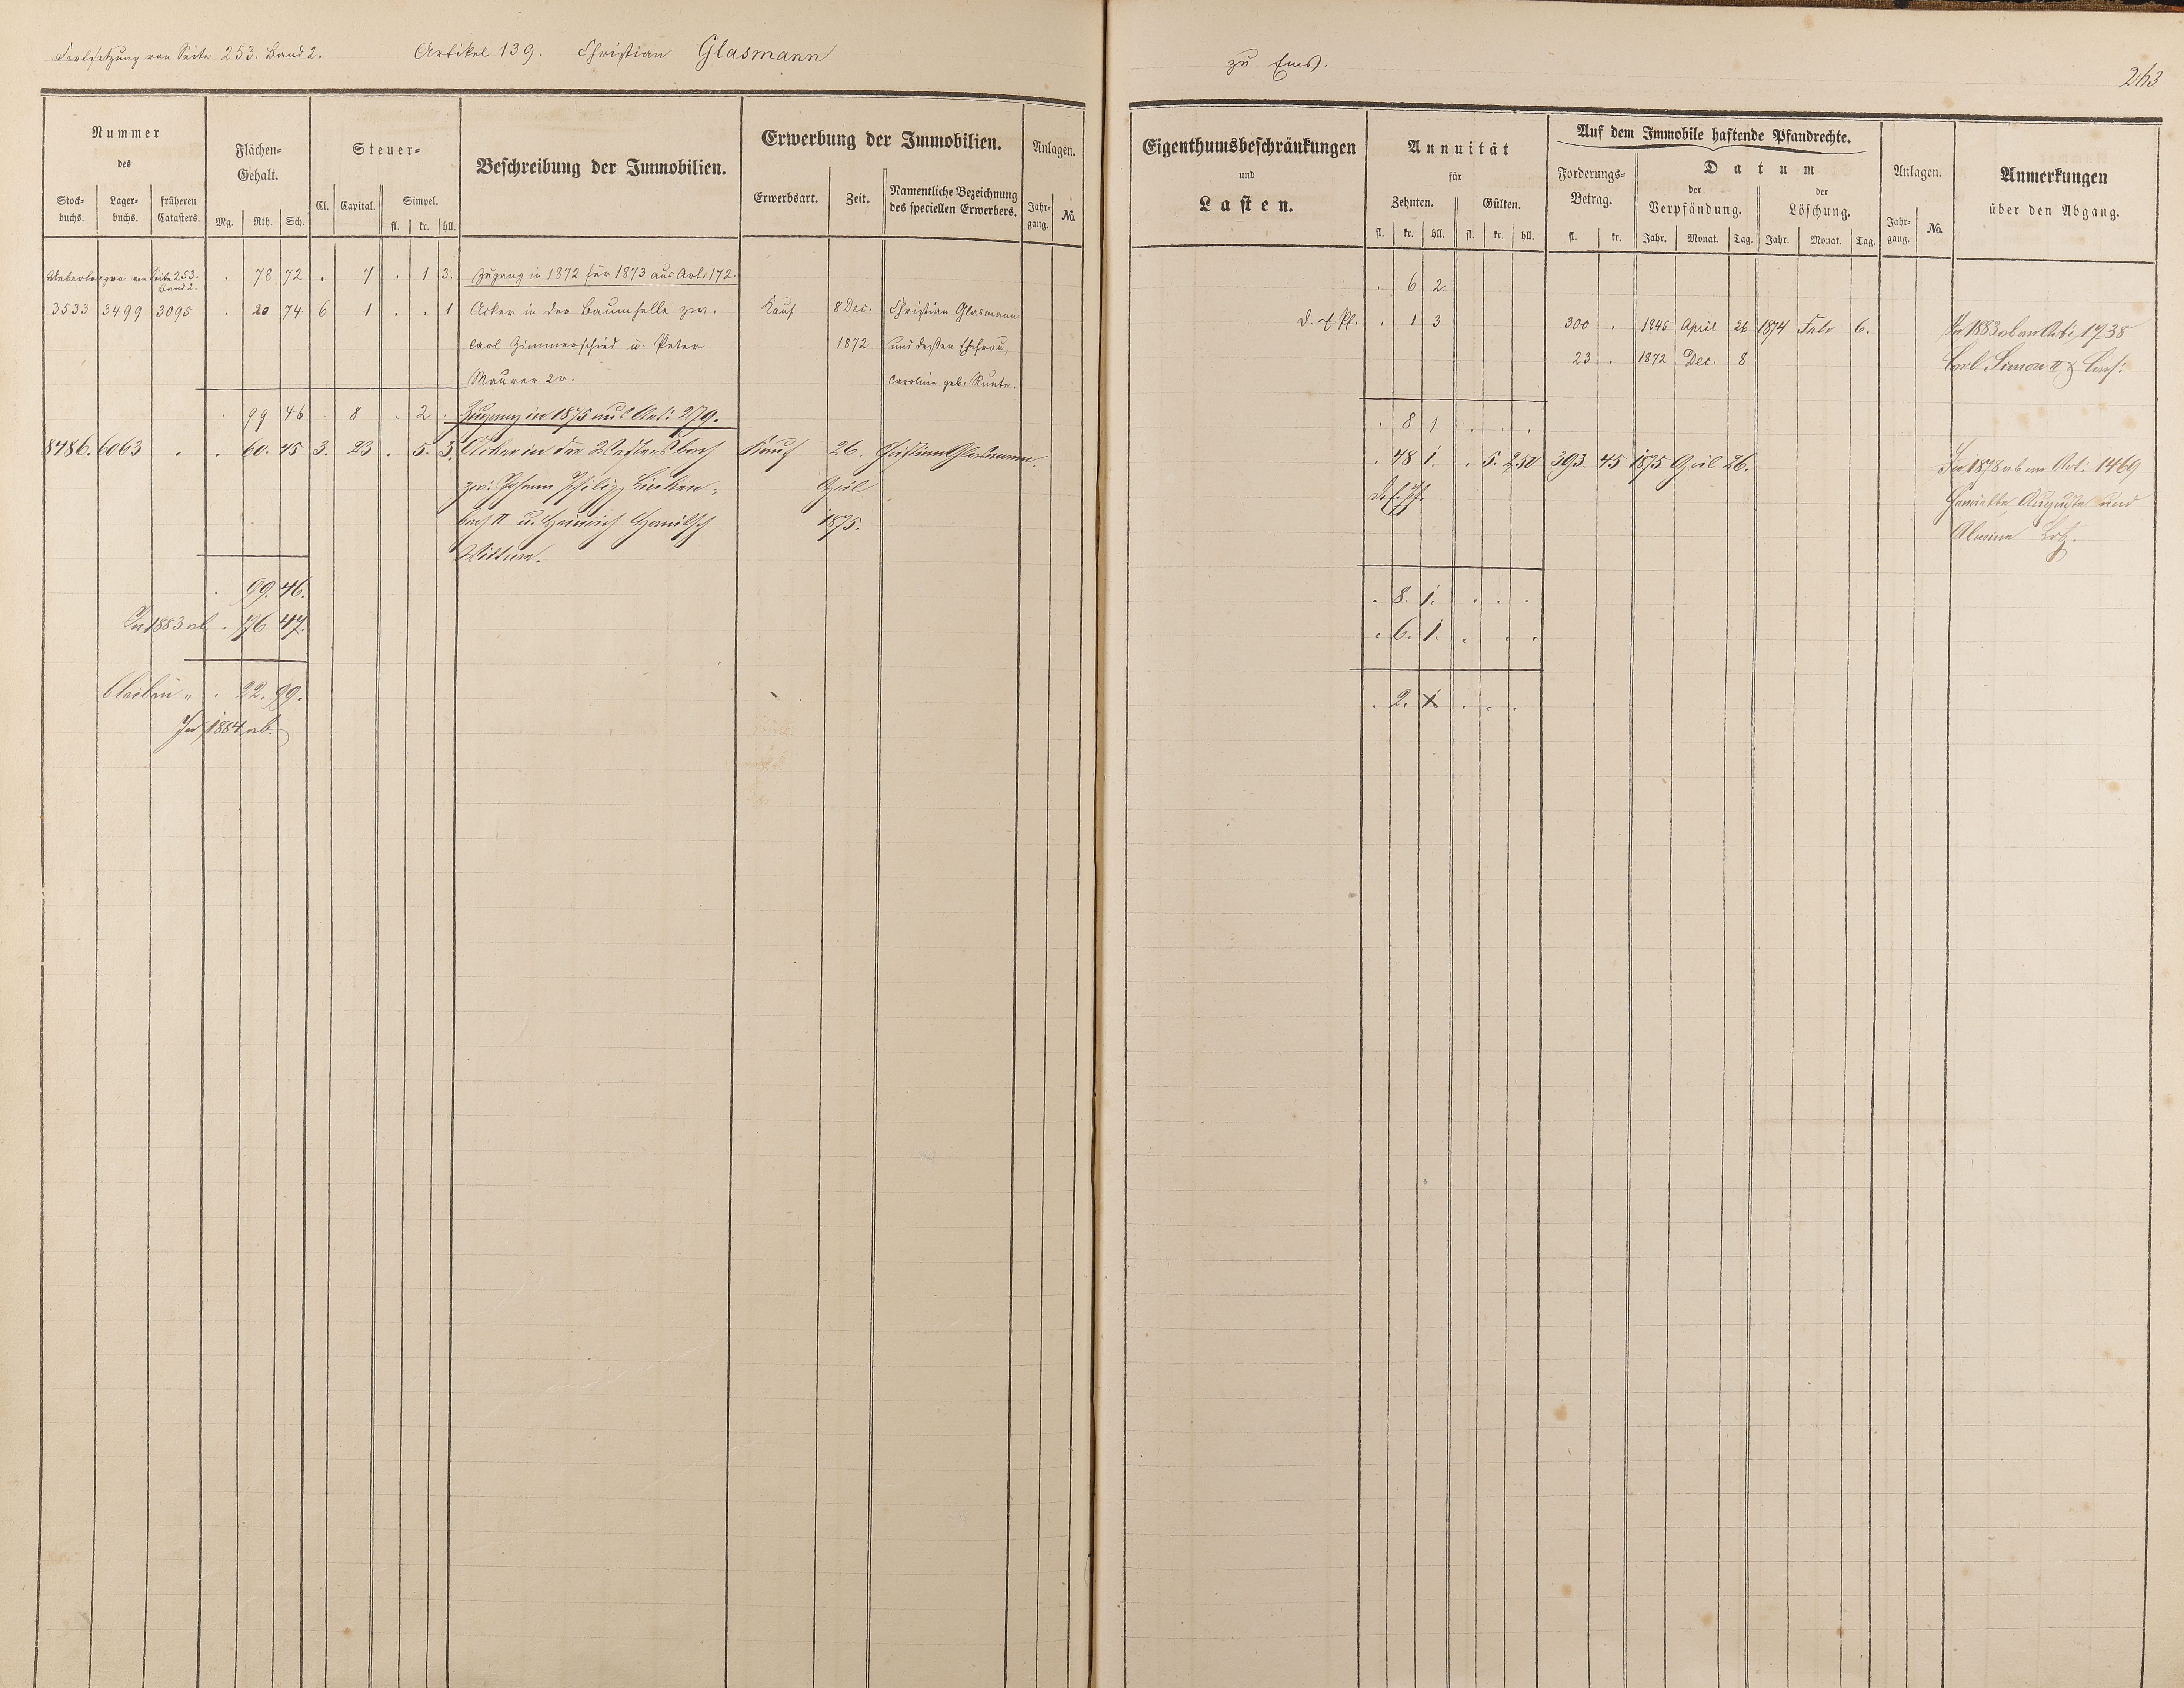 Fortsetzung von Seite 253. Band 2. Artikel 139. Christian Glasmann
zu Ems. 263
Nummer
des
Stock-
buchs. Lager-
buchs. früheren
Catasters.
Flächen-
Gehalt.
Mg. Rth. Sch.
Steuer-
Cl. Capital. Simpel.
fl. kr. hll.
Beschreibung der Immobilien.
Erwerbung der Immobilien.
Erwerbsart. Zeit. Namentliche Bezeichnung
des speciellen Erwerbers.
Anlagen.
Jahr-
gang. No.
Eigenthumsbeschränkungen
und
Lasten.
Annuität
für
Zehnten. Gülten.
fl. kr. hll. fl. kr. hll.
Auf dem Immobile haftende Pfandrechte.
Forderungs-
Betrag.
fl. kr.
Datum
der
Verpfändung.
Jahr. Monat. Tag.
der
Löschung.
Jahr. Monat. Tag.
Anlagen.
Jahr-
gang. No.
Anmerkungen
über den Abgang.
Uebertragen von Seite 253.
Band 2. . 78 72 . 7 . 1 3. Zugang in 1872 für 1873 aus Art: 172.
. 6 2
3533 3499 3095 . 20 74 6 1 . . 1 Acker in der Baumhelle zw. Kauf 8 Dec. Christian Glasmann
d. E. Pf. . 1 3 300 . 1845 April 26 1874 Febr 6. In 1883 ab an Art: 1738
Carl Zimmerschied u. Peter 1872 und dessen Ehefrau,
23 . 1872 Dec. 8 Carl Simon II & Cons:
Maurer 2r. Caroline geb.
. 99 46 . 8 . 2 . Zugang in 1875 aus Art: 279.
. 8 1 . . .
8486. 6063 . . 60. 45 3. 23 . 5. 3. Acker in der Kauf 26. Christian Glasmann.
. 48 1. . 5. 2,50 393. 45 1875 April 26. In 1878 ab an Art: 1469
zw: Johann Philipp April
d. E. Pf. Auguste und
bach II u. Heinrich 1875.
Wittwe.
. 99. 46.
. 8. 1. . . .
In 1883 ab . 76 47.
. 6. 1. . . .
bleiben " . 22. 99.
. 2. . . .
In 1884 ab.